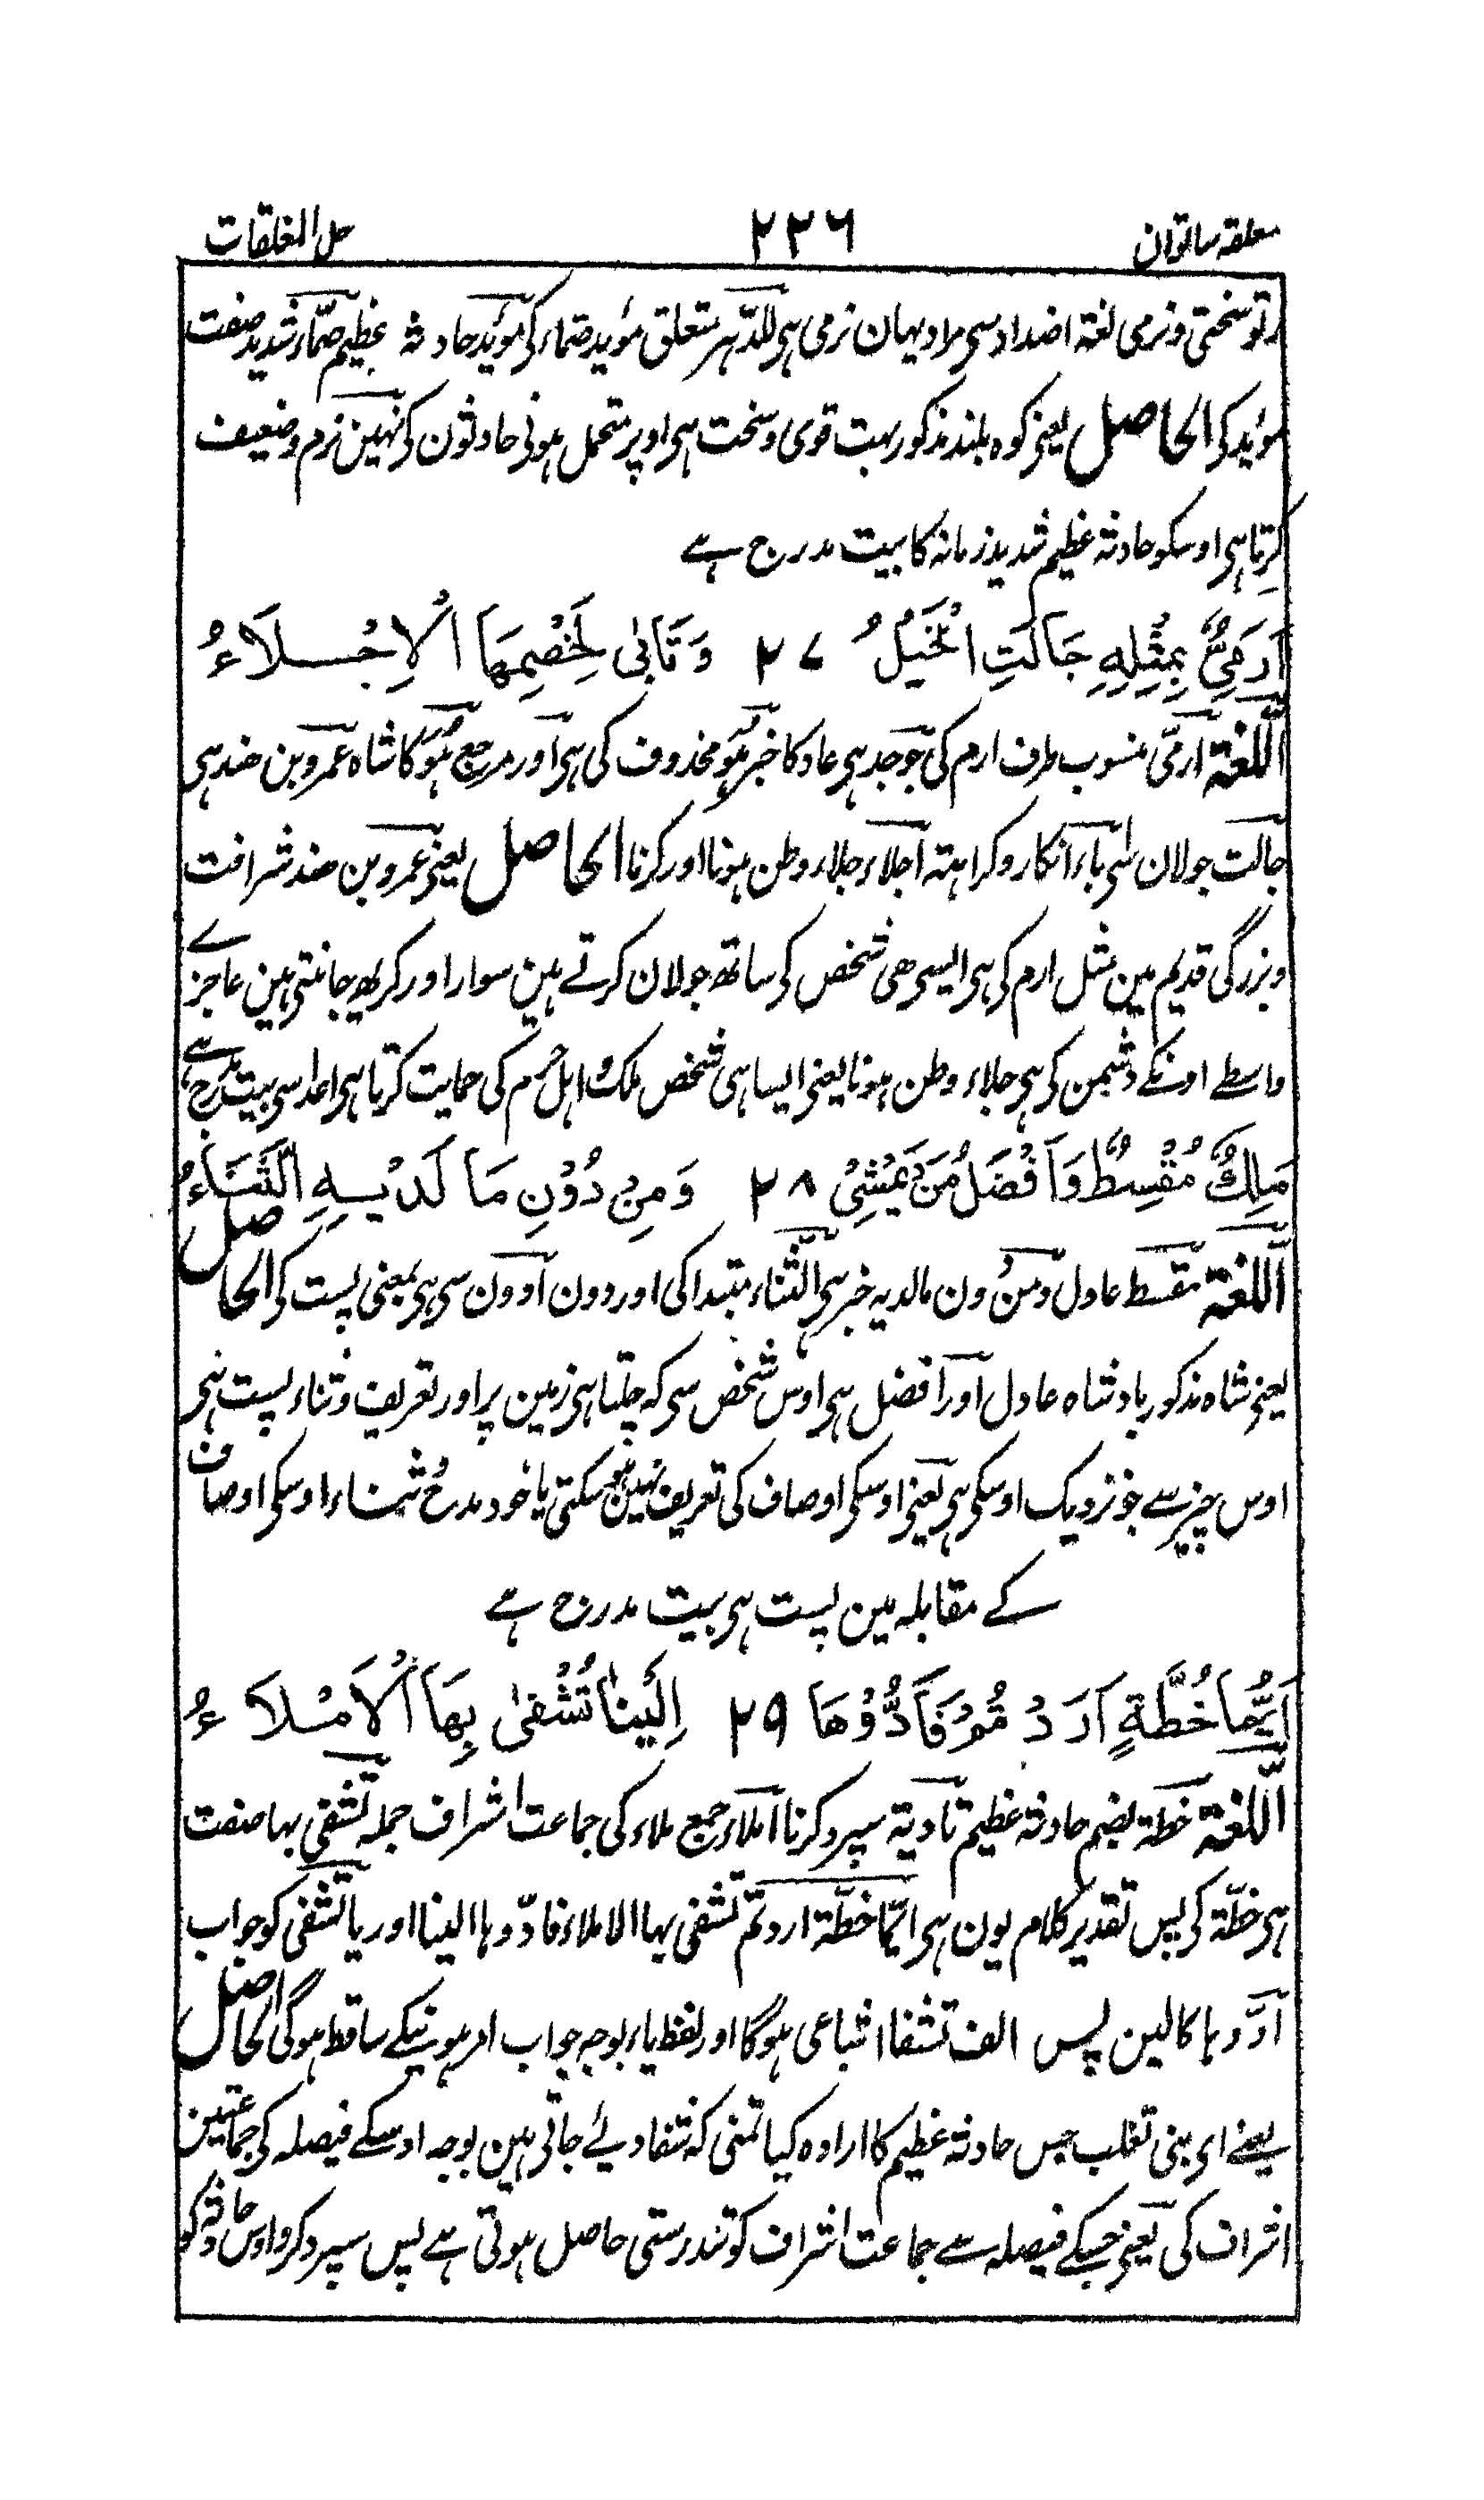 معلقہ ساتوان ۲۲۶ حل المغلقات
رتو سختی و نرمی لغۃ اضداد سی مراد یہان نرمی ہی للدّہر متعلق مؤید صمّاء کی مؤید حادثہ عظیم صمّاء شدید صفت
مؤید کی الحاصل یعنی کوہ بلند مذکور بہت قوی و سخت ہی اوپر متحمل ہونی حادثون کی نہین نرم و ضعیف
کرتا ہی اوسکو حادثہ عظیم شدید زمانہ کا بیت مدرج ہے
اَرَمِیٌّ بِمِثْلِهِ جَالَتِ الْخَيْلُ ۲۷ وَتَابٰى لِخَصْمِهَا الْاِجْلَاءُ
اللّغۃ ارمیّ منسوب طرف ارم کی جو جد ہی عاد کا خبر ہُوَ محذوف کی ہی اور مرجع ہُوَ کا شاہ عمرو بن ھند ہی
جالت جولان سی باء انکار و کراہتہ اجلاء جلاء وطن ہونا اور کرنا الحاصل یعنی عمرو بن ھند شرافت
و بزرگی قدیم مین مثل ارم کی ہی ایسی ھی شخص کی ساتھ جولان کرتے ہین سوار اور کریھ جانتی ہین عاجزے
واسطے اوسکے دشمن کی ہی جلاء وطن ہونا یعنی ایسا ہی شخص ملک و اہل حرم کی حمایت کرتا ہی اعدا سی بیت مدرج ہے
مَلِكٌ مُقْسِطٌ وَاَفْضَلُ مَنْ يَمْشِىْ ۲۸ وَمِنْ دُوْنِ مَا لَدَيْهِ الثَّنَاءُ
اللّغۃ مقسط عادل و من دون مالدیہ خبر ہی الثّناء مبتدا کی اور دون ادون سی ہی بمعنی پست کی الحاصل
یعنی شاہ مذکور بادشاہ عادل اور افضل ہی اوس شخص سی کہ چلتا ہی زمین پر اور تعریف و ثناء پست ہی
اوس چیز سے جو نزدیک اوسکی ہی یعنی اوسکی اوصاف کی تعریف نہین ہو سکتی یا خود مدح و ثناء اوسکی اوصاف
کے مقابلہ مین پست ہی بیت مدرج ہے
اَيُّمَا خُطَّةٍ اَرَدْتُمُ فَاَدُّوْهَا ۲۹ اِلَيْنَا تُشْفٰى بِهَا الْاَمْلَاءُ
اللّغۃ خطۃ بضم حادثہ عظیم تادیۃ سپرد کرنا املاء جمع ملاء کی جماعت اشراف جملہ تشفی بہا صفت
ہی خطّۃ کی پس تقدیر کلام یون ہی ایّما خطّۃ اردتم تشفی بہا الاملاء فادّوہا الینا اور یا تشفی کو جواب
ادّوہا کا لین پس الف تشفا اشباعی ہوگا اور لفظ یاء بوجہ جواب امر ہونیکے ساقط ہوگی الحاصل
یعنے ای بنی تغلب جس حادثہ عظیم کا ارادہ کیا تمنی کہ شفا دیے جاتی ہین بوجہ اوسکے فیصلہ کی جماعتین
اشراف کی یعنی جسکے فیصلہ سے جماعت اشراف کو تندرستی حاصل ہوتی ہے پس سپرد کرو اوس حادثہ کو